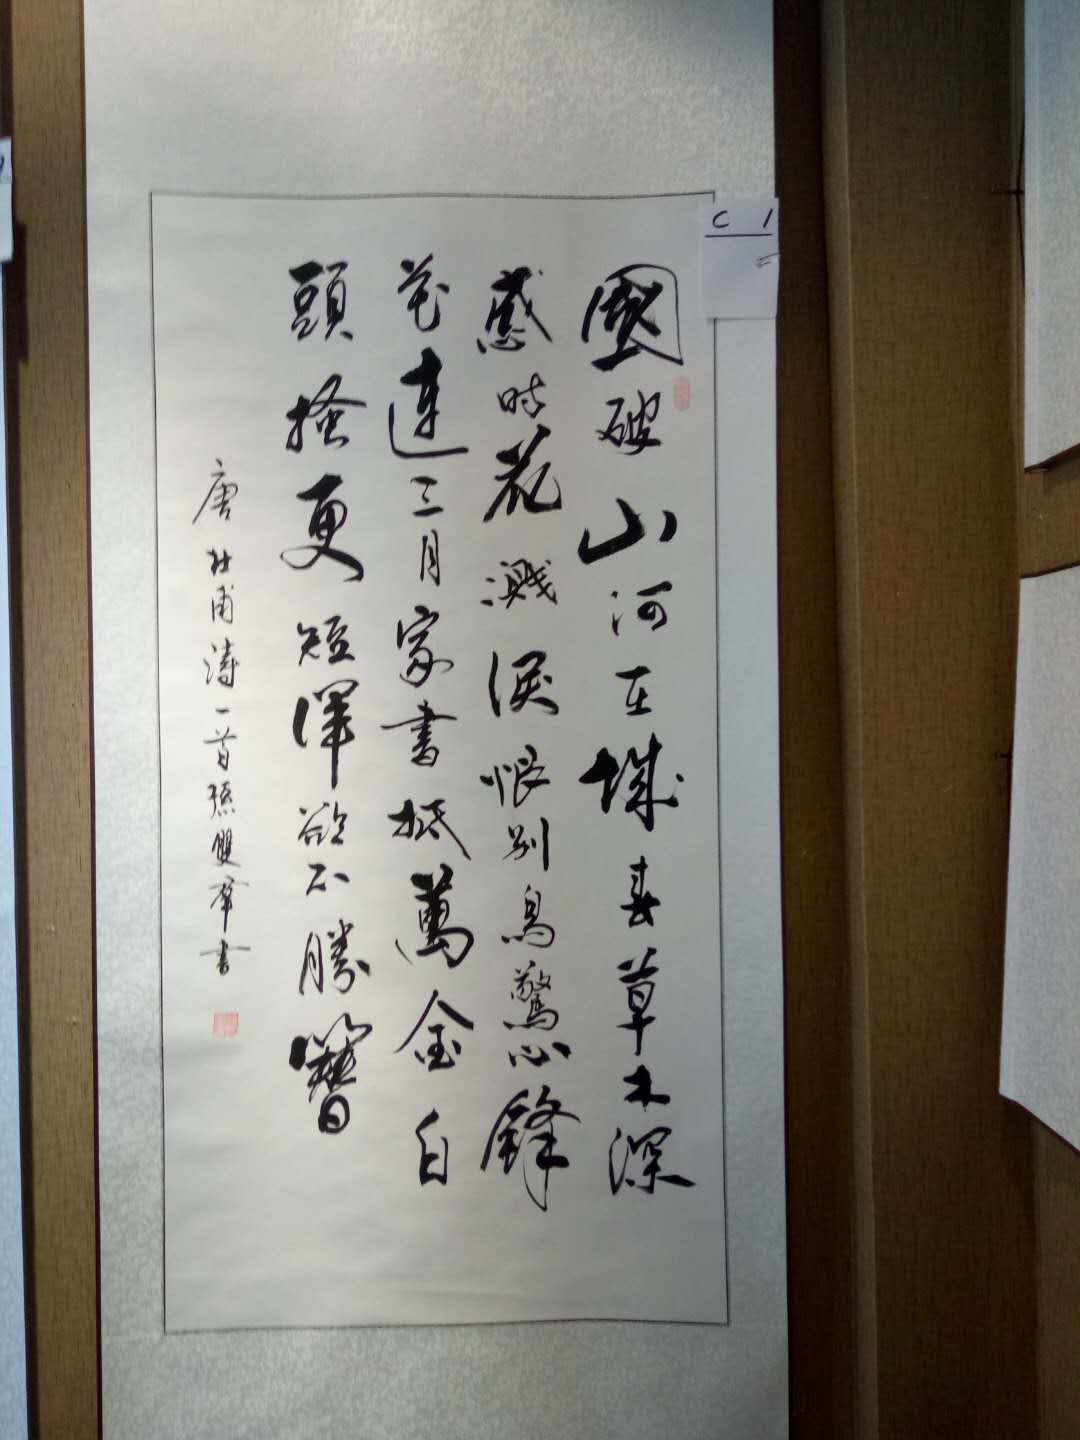 C 1
國破山河在城春草木深
感時花濺淚恨別鳥驚心鋒
連三月家書抵萬金白
頭搔更短渾欲不勝簪
唐杜甫詩一首孫雙群書